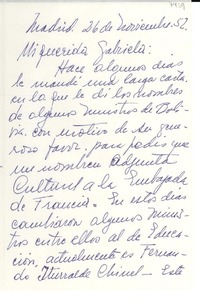 Madrid 26 de Noviembre. 52.
Mi querida Gabriela:
Hace algunos días
le mandé una larga carta
en la que le di los nombres
de algunos ministros de Boli-
via. con motivo de su gene-
roso favor. para pedir que
me nombren Adjunta
Cultural a la Embajada
de Francia. En estos días
cambiaron algunos minis-
tros entre ellos al de Educa-
ción, actualmente es Fernan-
do Iturralde Chinel - Este